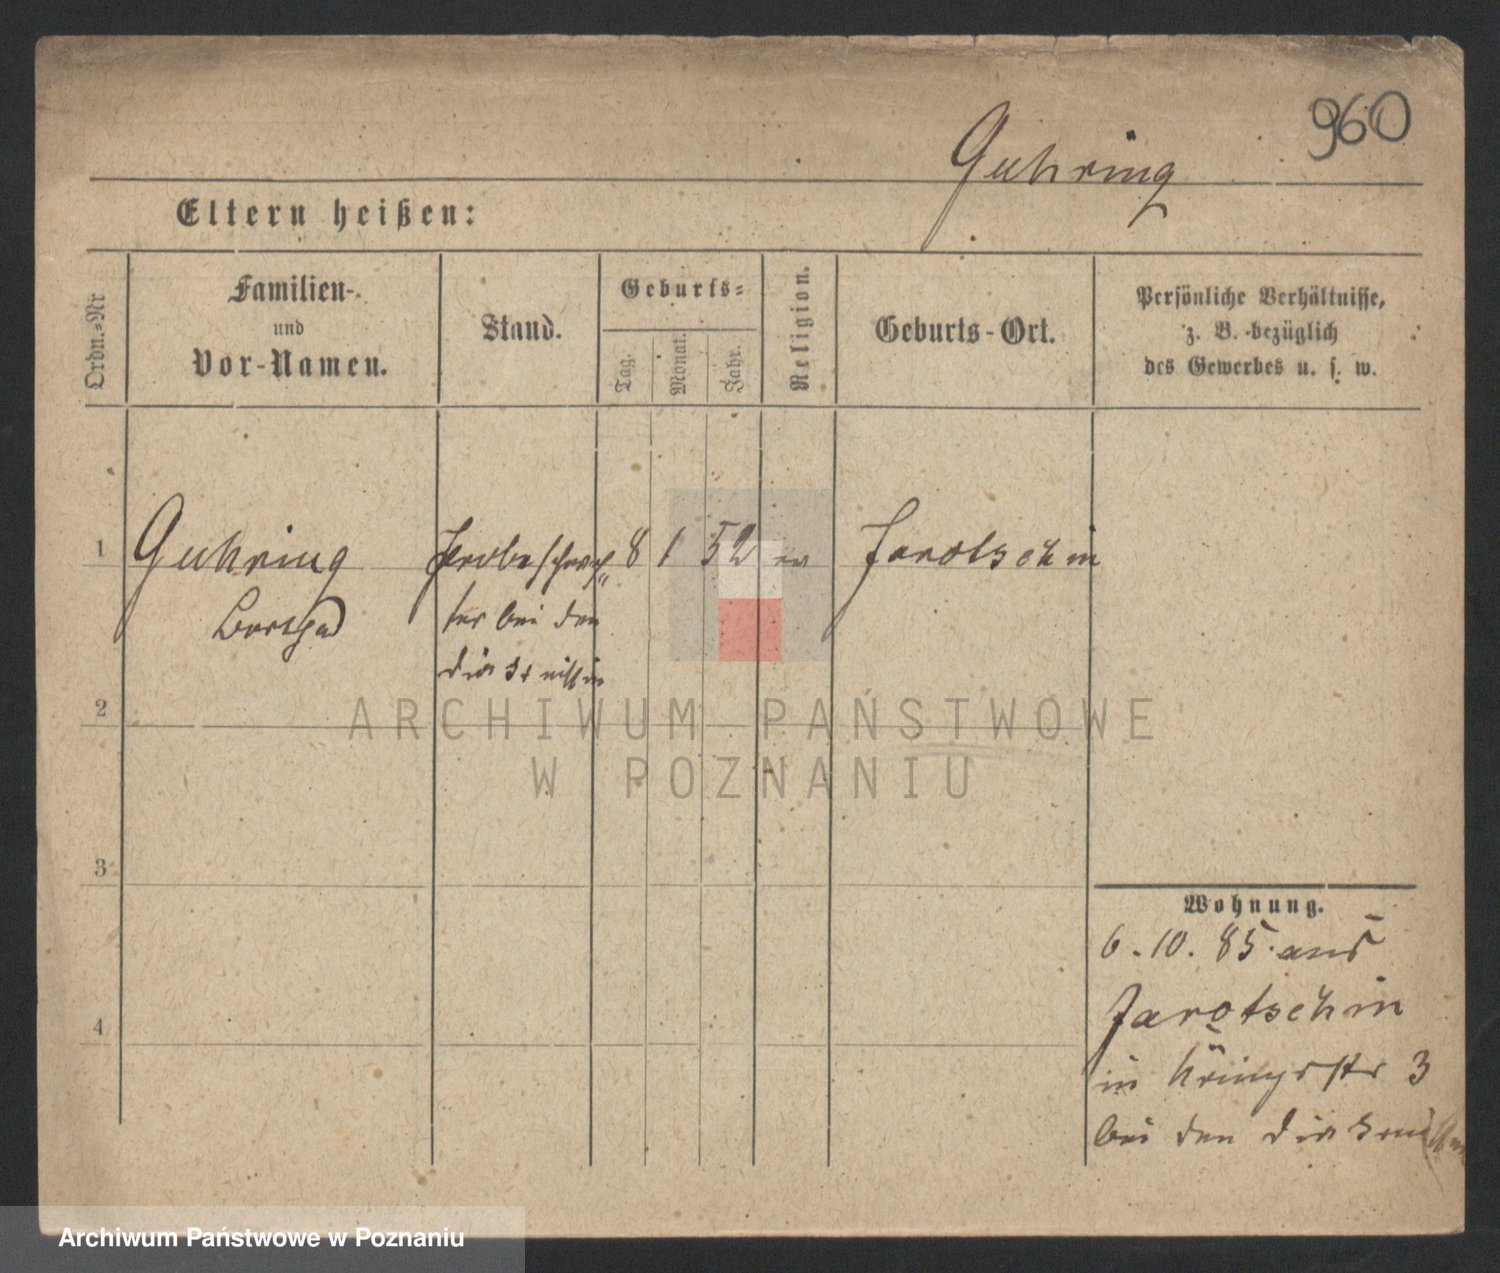 960
Guhring
Eltern heißen:
Ordn.=Nr
Familien-
und
Vor-Namen.
Stand.
Geburts=
Tag.
Monat.
Jahr.
Religion.
Geburts-Ort.
Persönliche Verhältnisse,
z. B. bezüglich
des Gewerbes u. s. w.
1 Guhring Probeschwes 8 1 52 ev Jarotschin
ter bei den
2
ARCHIWUM PAŃSTWOWE
W POZNANIU
3
Wohnung.
6.10.85 aus
Jarotschin
4
in Königsstr 3
bei den
Archiwum Państwowe w Poznaniu